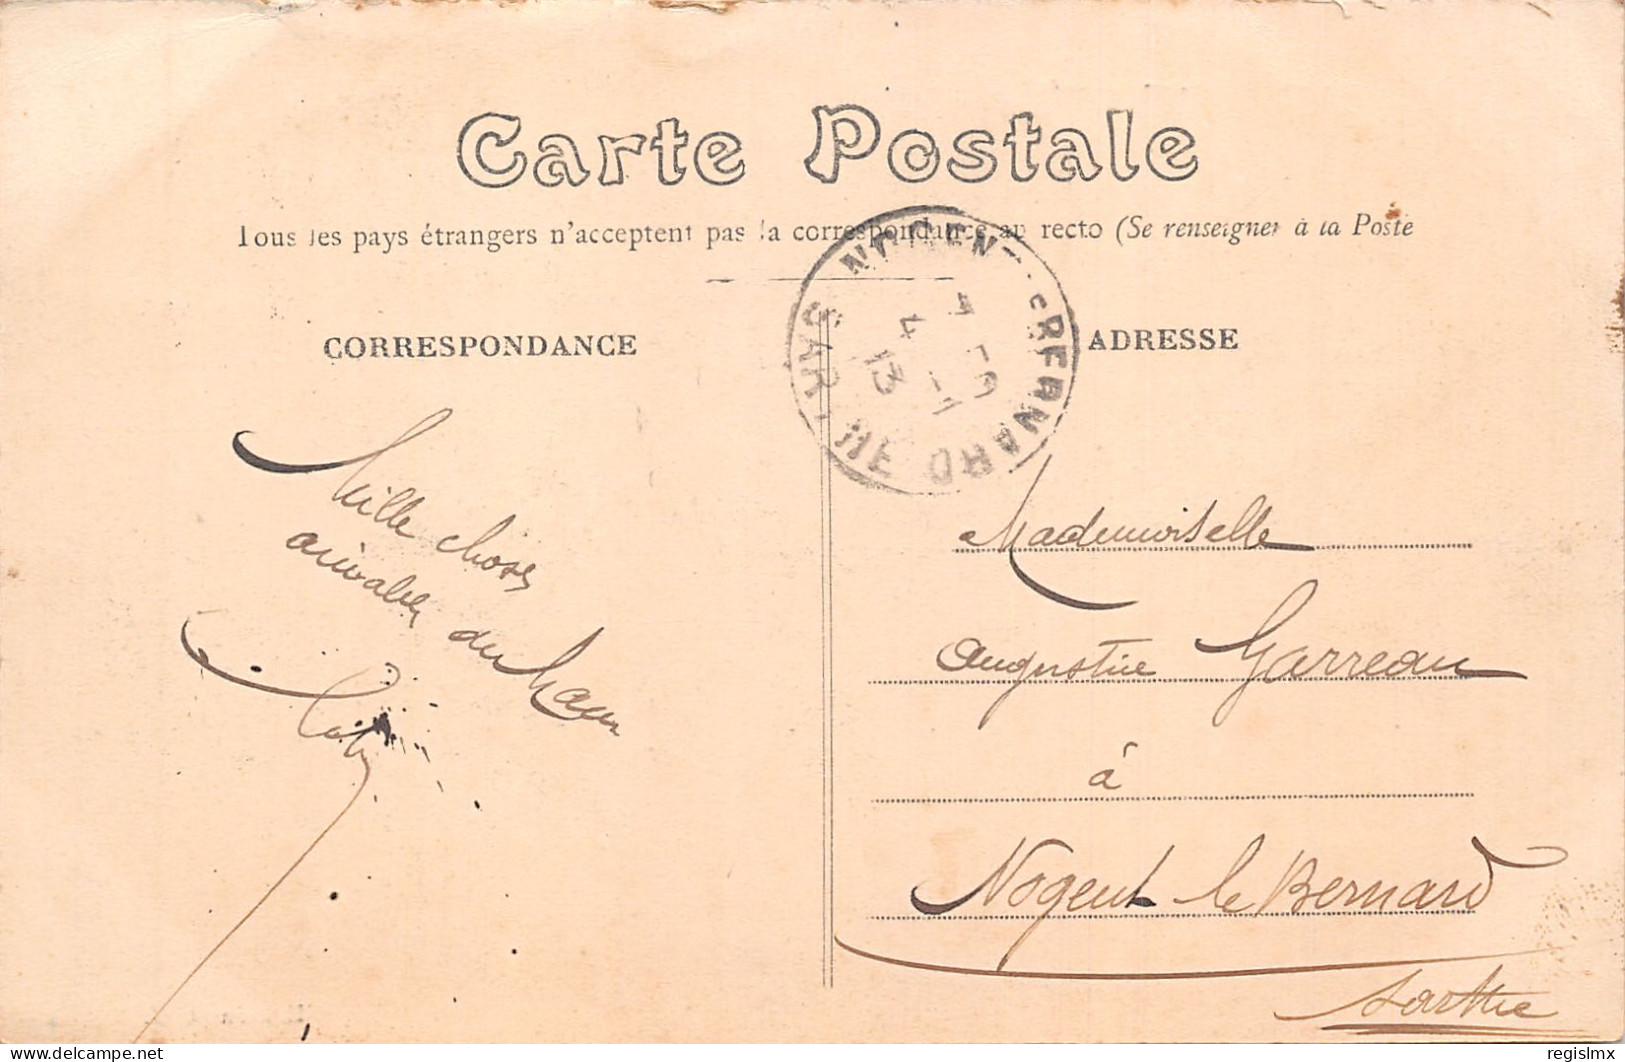 Carte Postale
Tous les pays étrangers n'acceptent pas la correspondance au recto (Se renseigner à la Poste
CORRESPONDANCE
ADRESSE
NOGENT-LE-BERNARD
SARTHE
4 -1
13
Mille choses
aimables du
Mademoiselle
Augustine Garreau
à
Nogent le Bernard
Sarthe
delcampe.net
regislmx